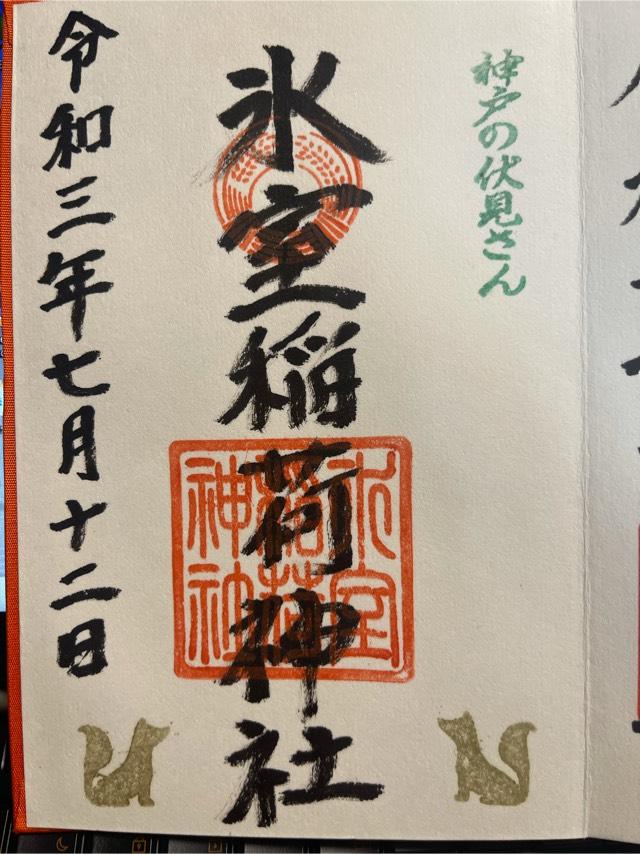 神戸の伏見さん
氷室稲荷神社
氷室
稲荷
神社
令和三年七月十二日